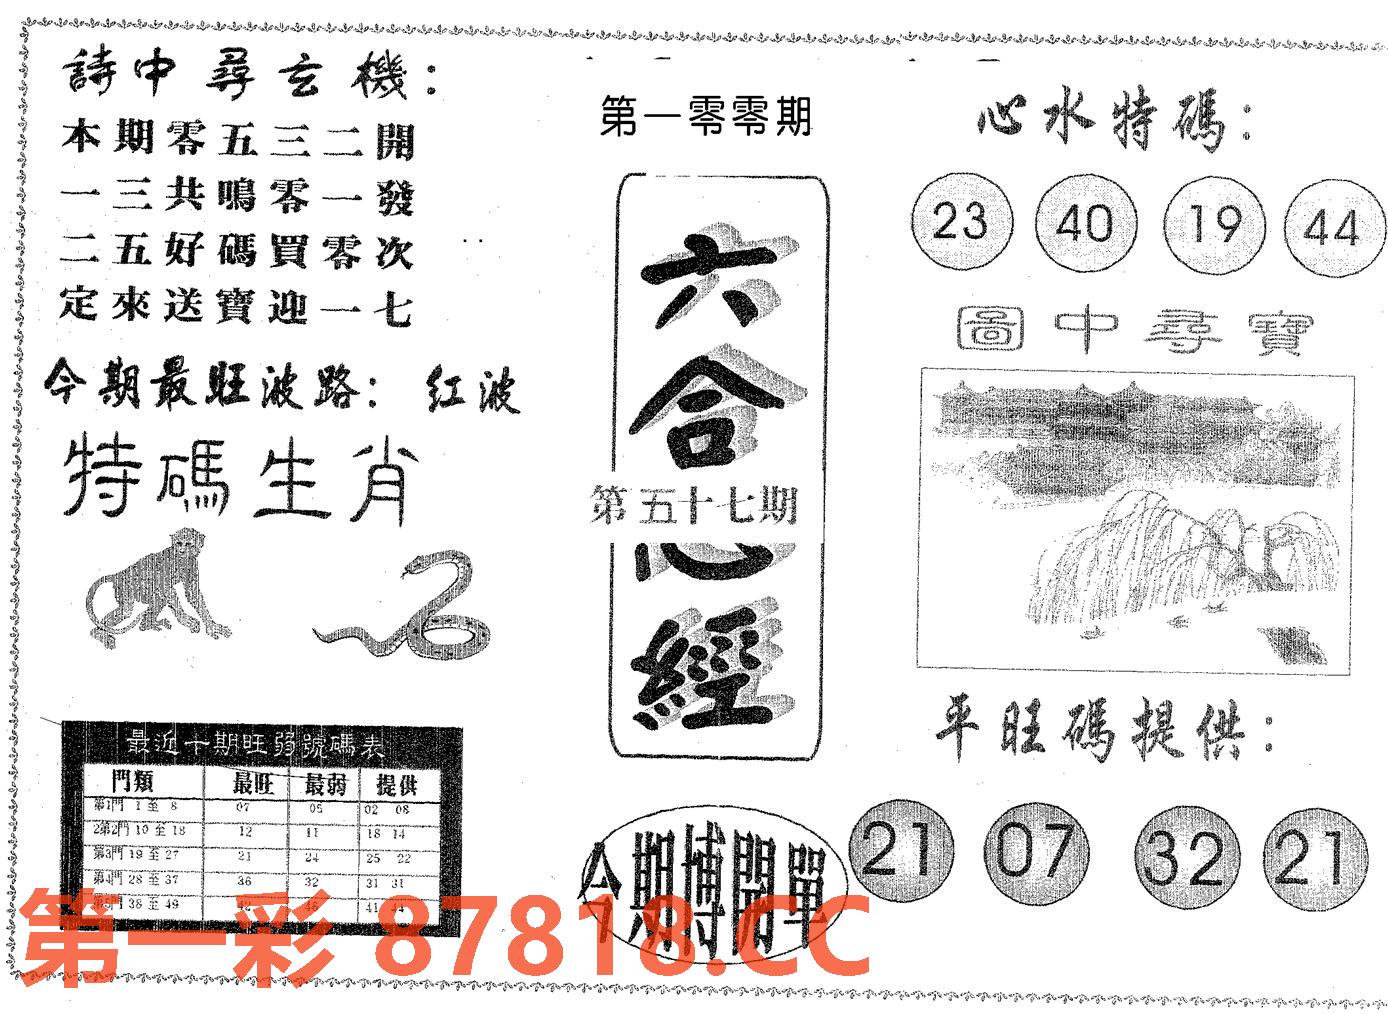 詩中尋玄機：
本期零五三二開
一三共鳴零一發
二五好碼買零次
定來送寶迎一七
今期最旺波路： 红波
特碼生肖
最近十期旺弱號碼表
門類 最旺 最弱 提供
第1門 1 至 8 07 05 02 08
2第2門 10 至 18 12 11 18 14
第3門 19 至 27 21 24 25 22
第4門 28 至 37 36 32 31 31
第5門 38 至 49 42 46 41 44
第一零零期
六合
第五十七期
心經
今期博開單
心水特碼：
23 40 19 44
圖中尋寶
平旺碼提供：
21 07 32 21
第一彩 87818.CC